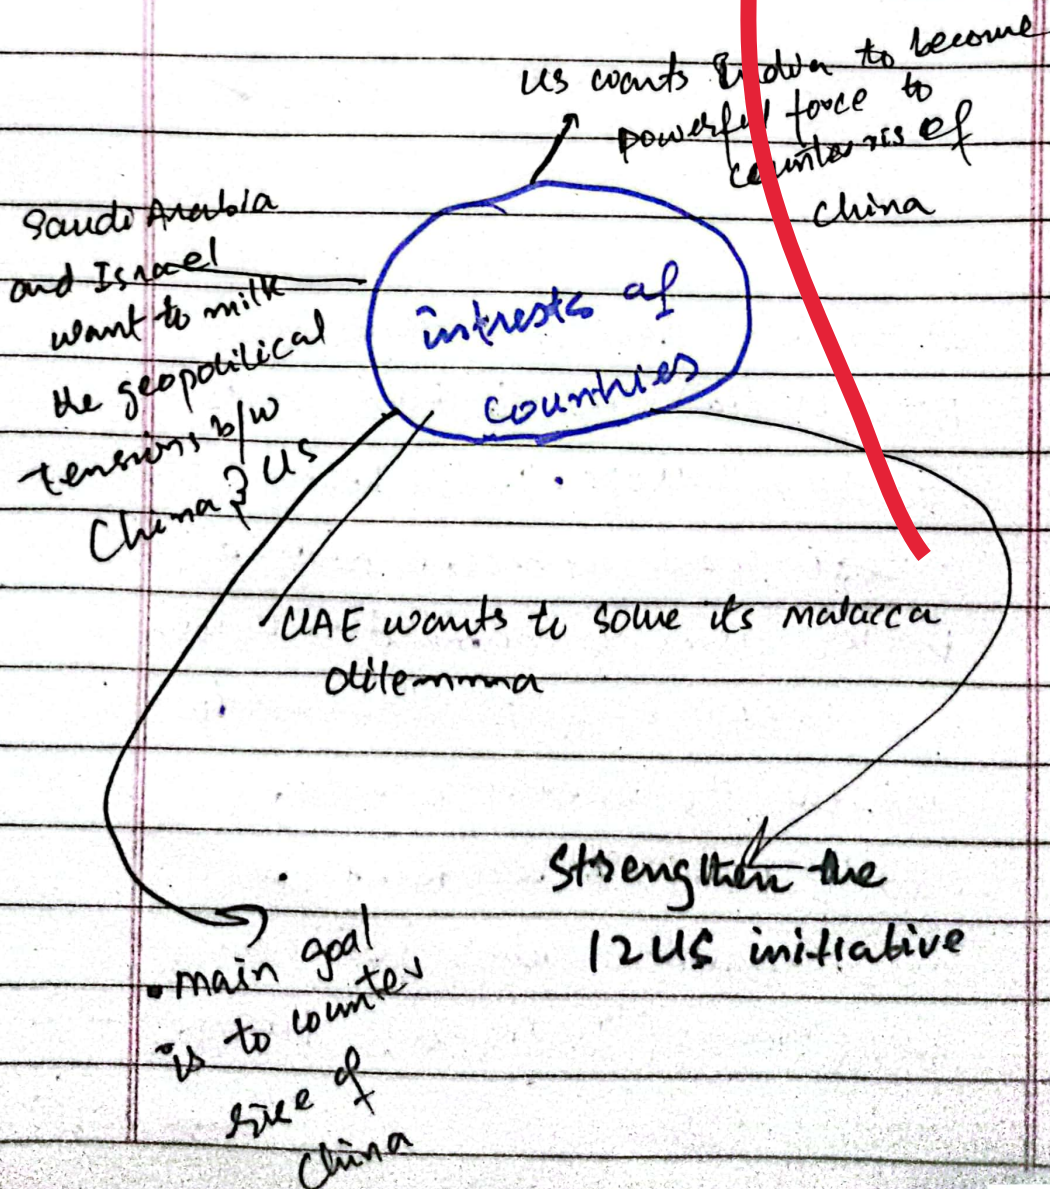 us wants India to become
powerful force to
counter ris of
china
Saudi Arabia
and Israel
want to milk
the geopolitical
tensions b/w
China & US
intrests of
countries
UAE wants to solve its malacca
dilemma
Strengthen the
I2US initiative
• main goal
is to counter
rise of
China